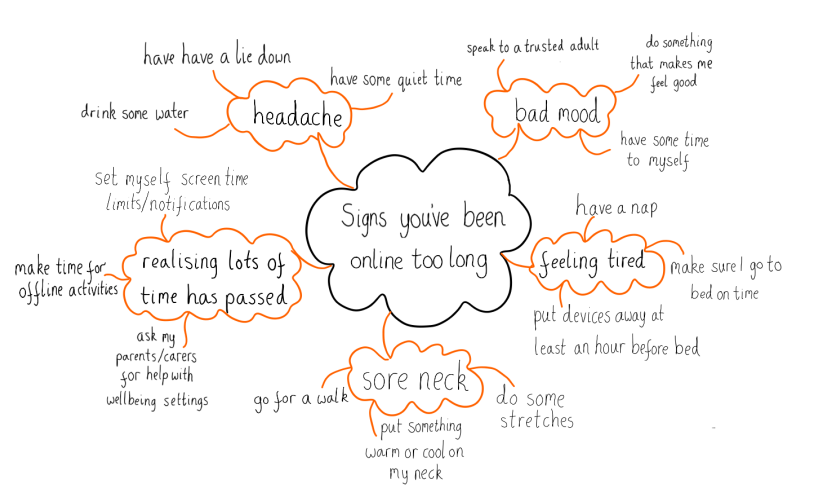 have have a lie down
have some quiet time
drink some water
headache
speak to a trusted adult
do something
that makes me
feel good
bad mood
have some time
to myself
set myself screen time
limits/notifications
Signs you've been
online too long
have a nap
make time for
offline activities
realising lots of
time has passed
feeling tired
make sure I go to
bed on time
ask my
parents/carers
for help with
wellbeing settings
put devices away at
least an hour before bed
sore neck
go for a walk
do some
stretches
put something
warm or cool on
my neck